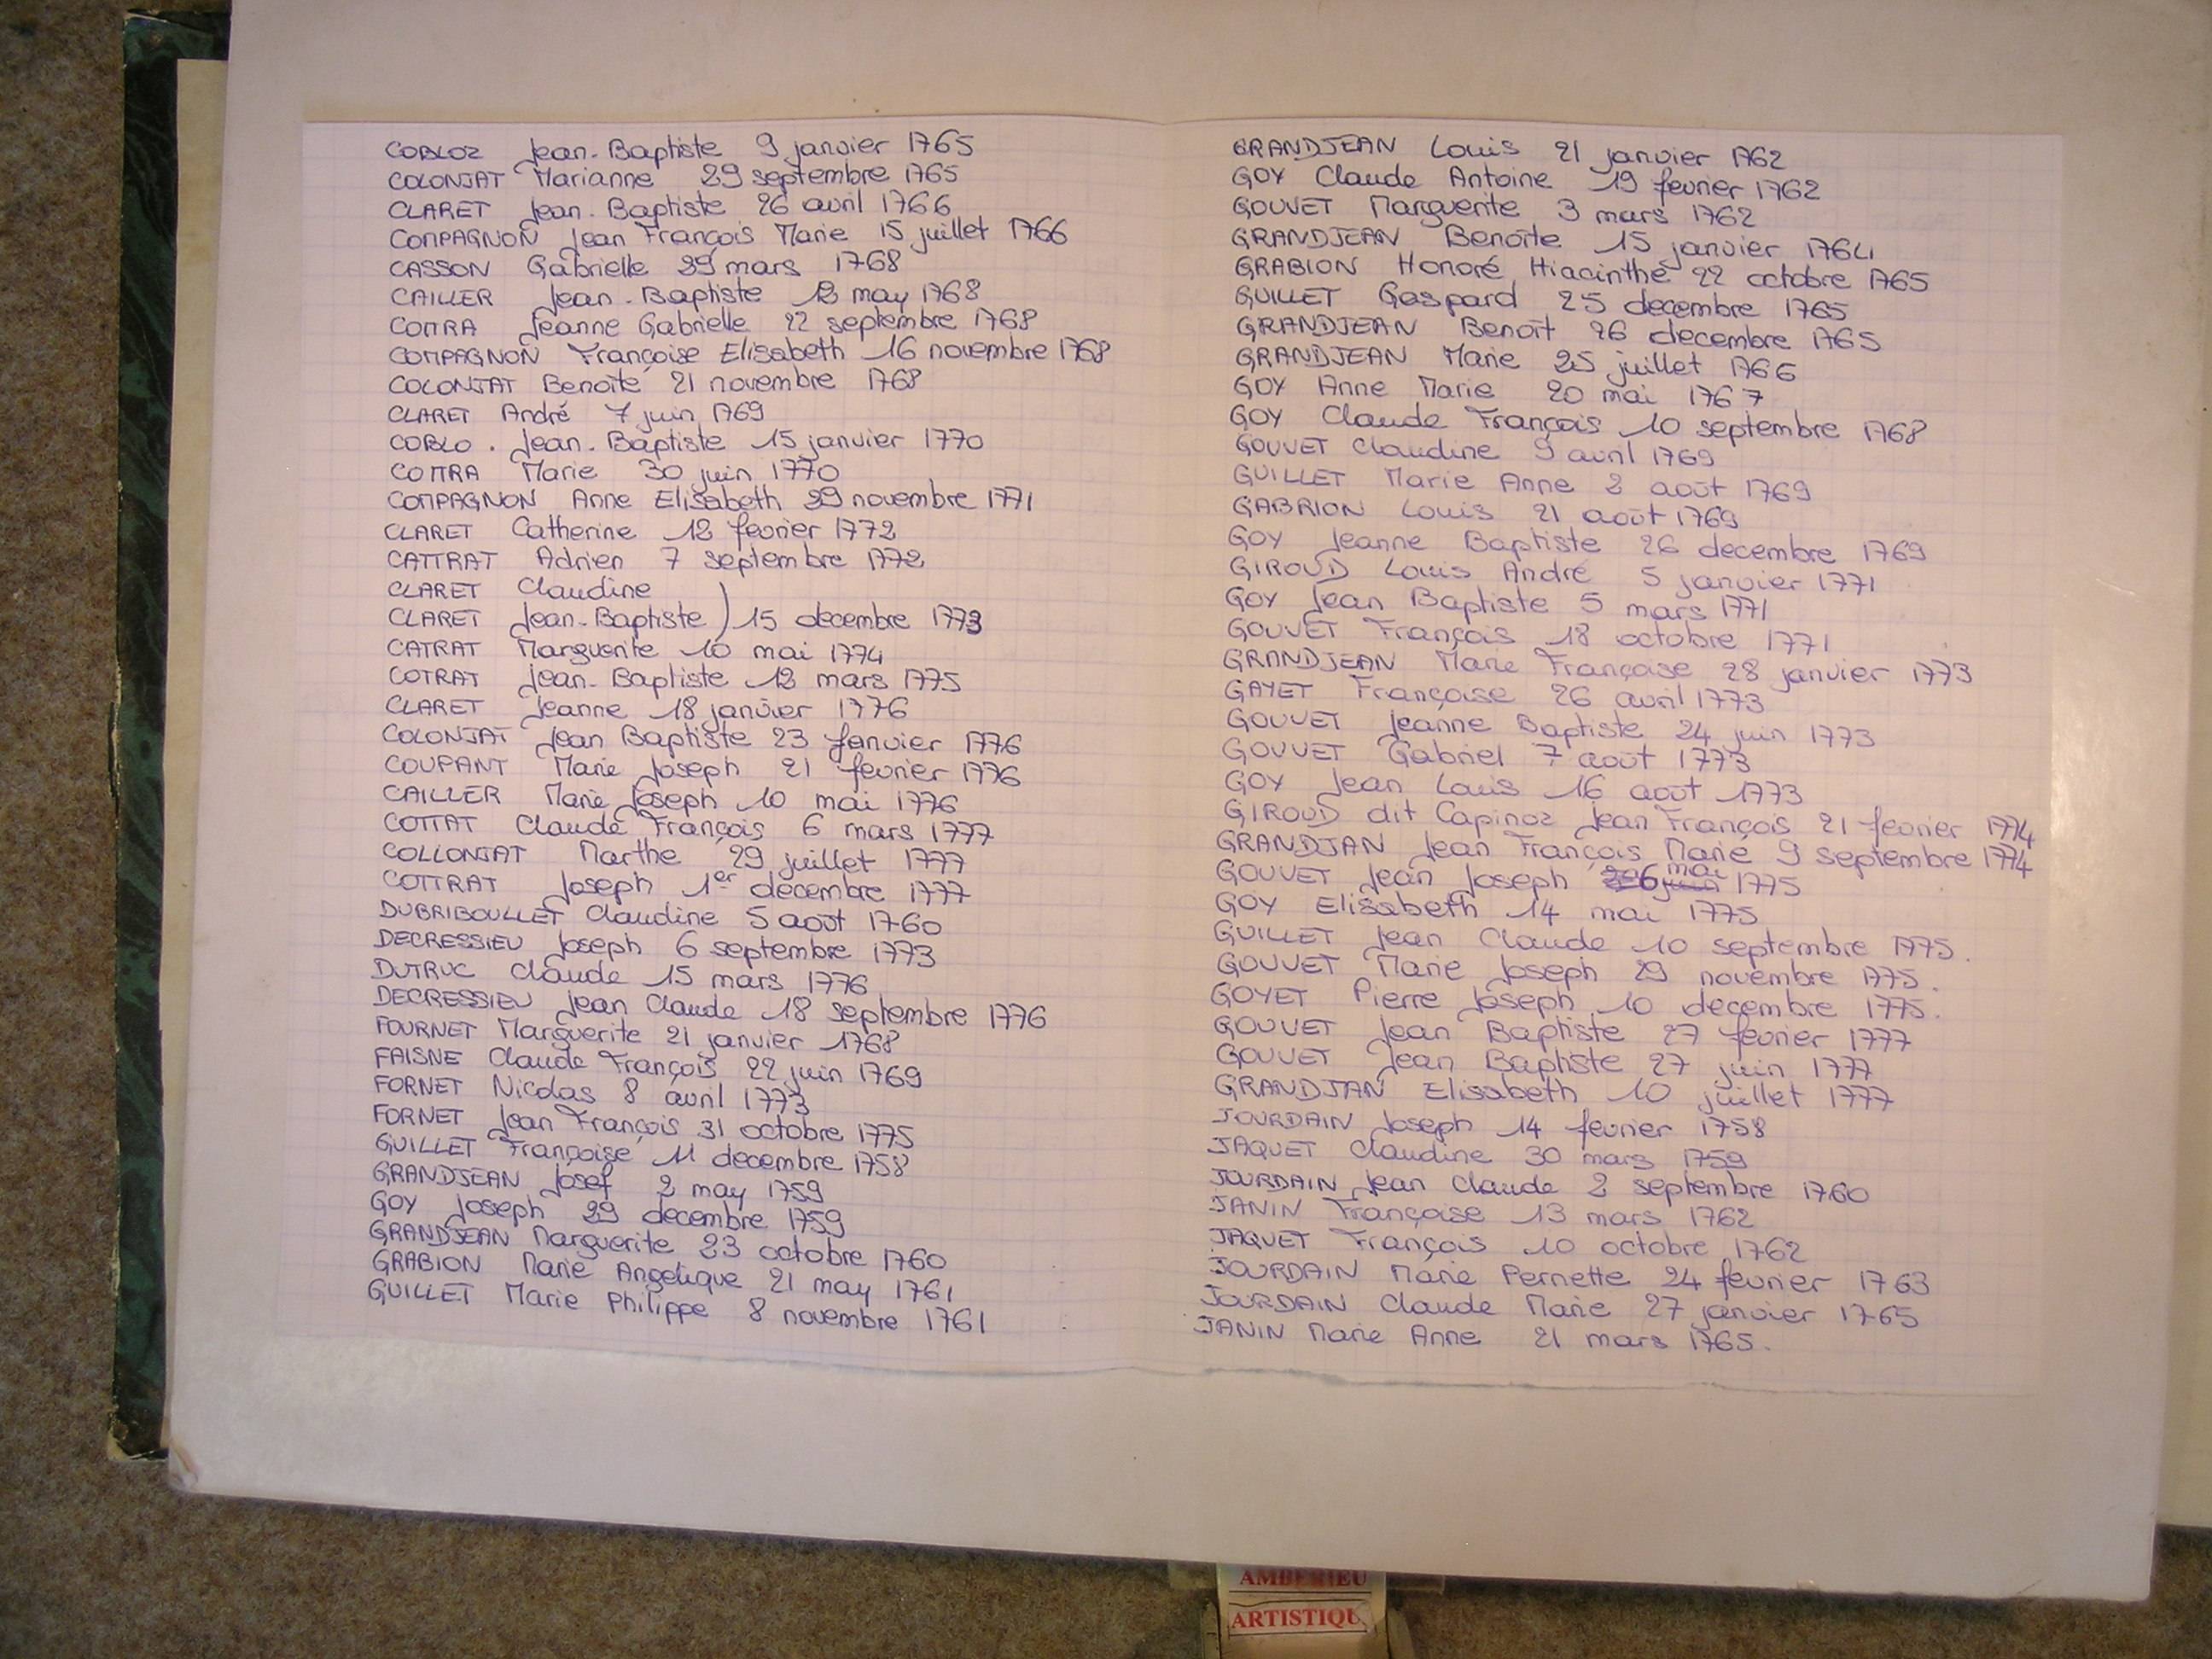 COBLOZ Jean-Baptiste 9 janvier 1765
COLONJAT Marianne 29 septembre 1765
CLARET Jean-Baptiste 26 avril 1766
COMPAGNON Jean François Marie 15 juillet 1766
CASSON Gabrielle 29 mars 1768
CAILLER Jean-Baptiste 12 may 1768
COTTRA Jeanne Gabrielle 22 septembre 1768
COMPAGNON Françoise Elisabeth 16 novembre 1768
COLONJAT Benoîte 21 novembre 1768
CLARET André 7 juin 1769
COBLO . Jean-Baptiste 15 janvier 1770
COTTRA Marie 30 juin 1770
COMPAGNON Anne Elisabeth 29 novembre 1771
CLARET Catherine 12 fevrier 1772
CATTRAT Adrien 7 septembre 1772
CLARET Claudine
CLARET Jean-Baptiste ) 15 decembre 1773
CATRAT Marguerite 10 mai 1774
COTRAT Jean-Baptiste 12 mars 1775
CLARET Jeanne 18 janvier 1776
COLONJAT Jean Baptiste 23 janvier 1776
COUPANT Marie Joseph 21 fevrier 1776
CAILLER Marie Joseph 10 mai 1776
COTTAT Claude François 6 mars 1777
COLLONJAT Marthe 29 juillet 1777
COTTRAT Joseph 1er decembre 1777
DUBRIBOULLET Claudine 5 août 1760
DECRESSIEU Joseph 6 septembre 1773
DUTRUC Claude 15 mars 1776
DECRESSIEU Jean Claude 18 septembre 1776
FOURNET Marguerite 21 janvier 1768
FAISNE Claude François 22 juin 1769
FORNET Nicolas 8 avril 1773
FORNET Jean François 31 octobre 1775
GUILLET Françoise 11 decembre 1758
GRANDJEAN Josef 2 may 1759
GOY Joseph 29 decembre 1759
GRANDJEAN Marguerite 23 octobre 1760
GRABION Marie Angelique 21 may 1761
GUILLET Marie Philippe 8 novembre 1761
GRANDJEAN Louis 21 janvier 1762
GOY Claude Antoine 19 fevrier 1762
GOUVET Marguerite 3 mars 1762
GRANDJEAN Benoîte 15 janvier 1764
GRABION Honoré Hiacinthe 22 octobre 1765
GUILLET Gaspard 25 decembre 1765
GRANDJEAN Benoît 26 decembre 1765
GRANDJEAN Marie 25 juillet 1766
GOY Anne Marie 20 mai 1767
GOY Claude François 10 septembre 1768
GOUVET Claudine 9 avril 1769
GUILLET Marie Anne 2 août 1769
GABRION Louis 21 août 1769
GOY Jeanne Baptiste 26 decembre 1769
GIROUD Louis André 5 janvier 1771
GOY Jean Baptiste 5 mars 1771
GOUVET François 18 octobre 1771
GRANDJEAN Marie Françoise 28 janvier 1773
GAYET Françoise 26 avril 1773
GOUVET Jeanne Baptiste 24 juin 1773
GOUVET Gabriel 7 août 1773
GOY Jean Louis 16 août 1773
GIROUD dit Capinoz Jean François 21 fevrier 1774
GRANDJAN Jean François Marie 9 septembre 1774
GOUVET Jean Joseph 6 mai 1775
GOY Elisabeth 14 mai 1775
GUILLET Jean Claude 10 septembre 1775.
GOUVET Marie Joseph 29 novembre 1775.
GOYET Pierre Joseph 10 decembre 1775.
GOUVET Jean Baptiste 27 fevrier 1777
GOUVET Jean Baptiste 27 juin 1777
GRANDJAN Elisabeth 10 juillet 1777
JOURDAIN Joseph 14 fevrier 1758
JAQUET Claudine 30 mars 1759
JOURDAIN Jean Claude 2 septembre 1760
JANIN Françoise 13 mars 1762
JAQUET François 10 octobre 1762
JOURDAIN Marie Pernette 24 fevrier 1763
JOURDAIN Claude Marie 27 janvier 1765
JANIN Marie Anne 21 mars 1765.
AMBERIEU
ARTISTIQU